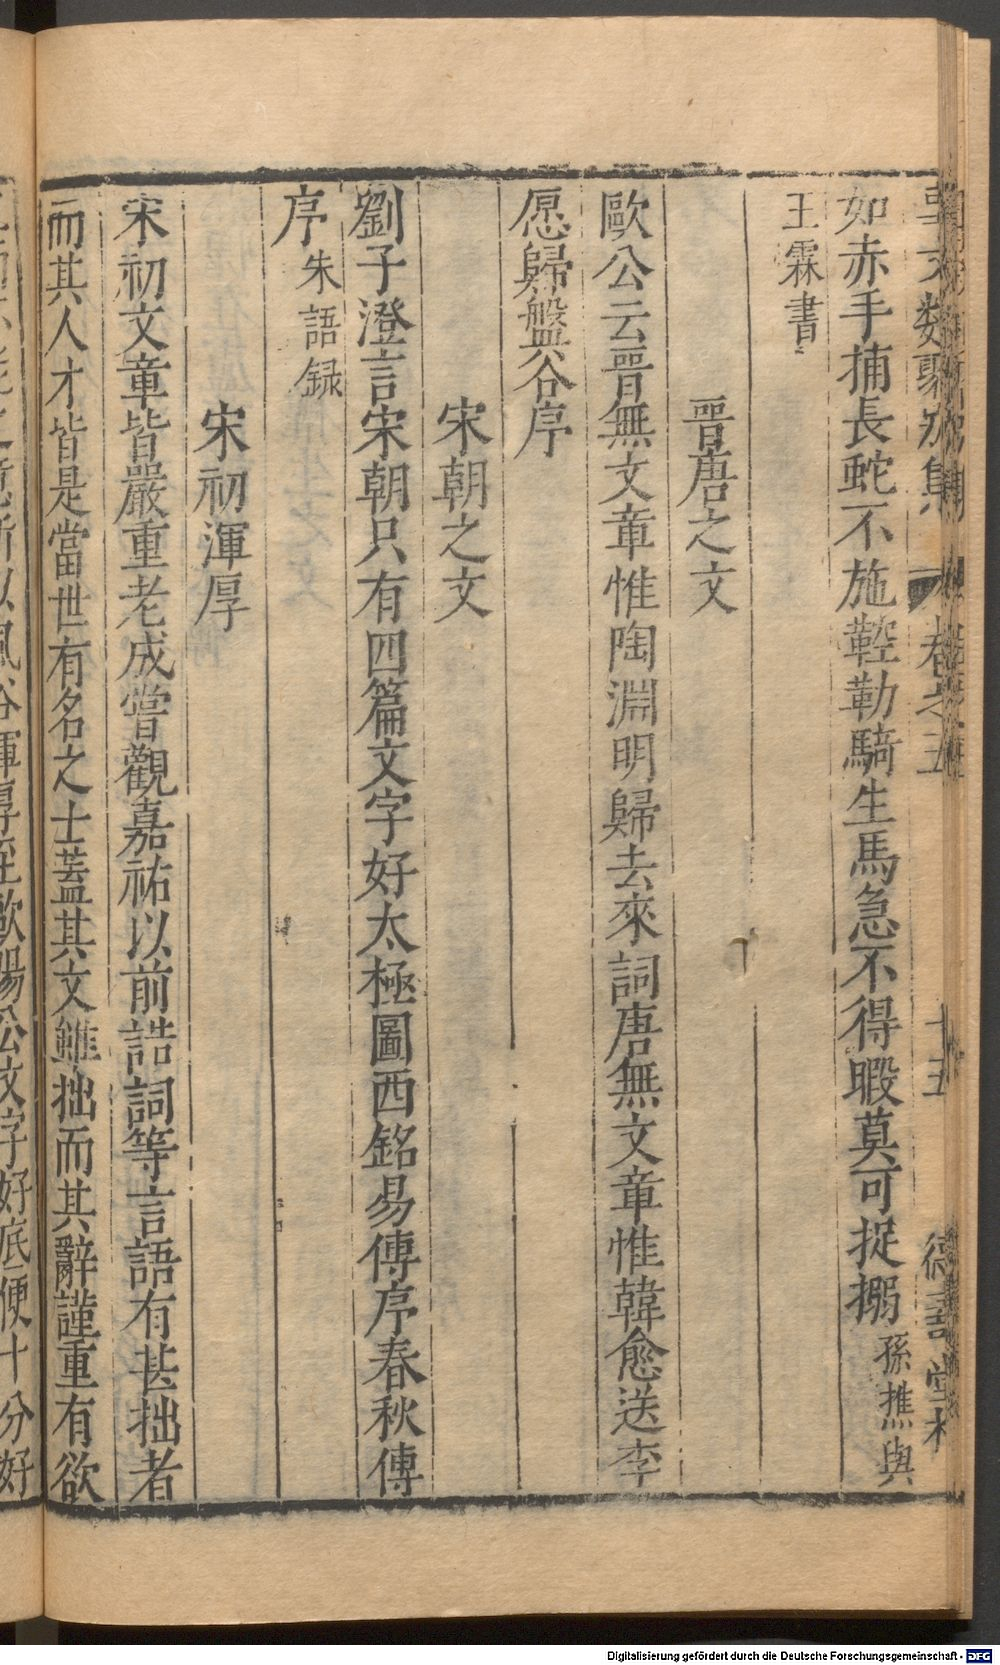 事文類聚別集 卷之五 十五 德壽堂梓
如赤手捕長蛇不施鞚勒騎生馬急不得暇莫可捉搦孫樵與
王霖書
晋唐之文
歐公云晋無文章惟陶淵明歸去來詞唐無文章惟韓愈送李
愿歸盤谷序
宋朝之文
劉子澄言宋朝只有四篇文字好太極圖西銘易傳序春秋傳
序朱語録
宋初渾厚
宋初文章皆嚴重老成甞觀嘉祐以前誥詞等言語有甚拙者
而其人才皆是當世有名之士蓋其文雖拙而其辭謹重有欲
風俗渾厚至歐陽公文字好底便十分好
Digitalisierung gefördert durch die Deutsche Forschungsgemeinschaft - DFG